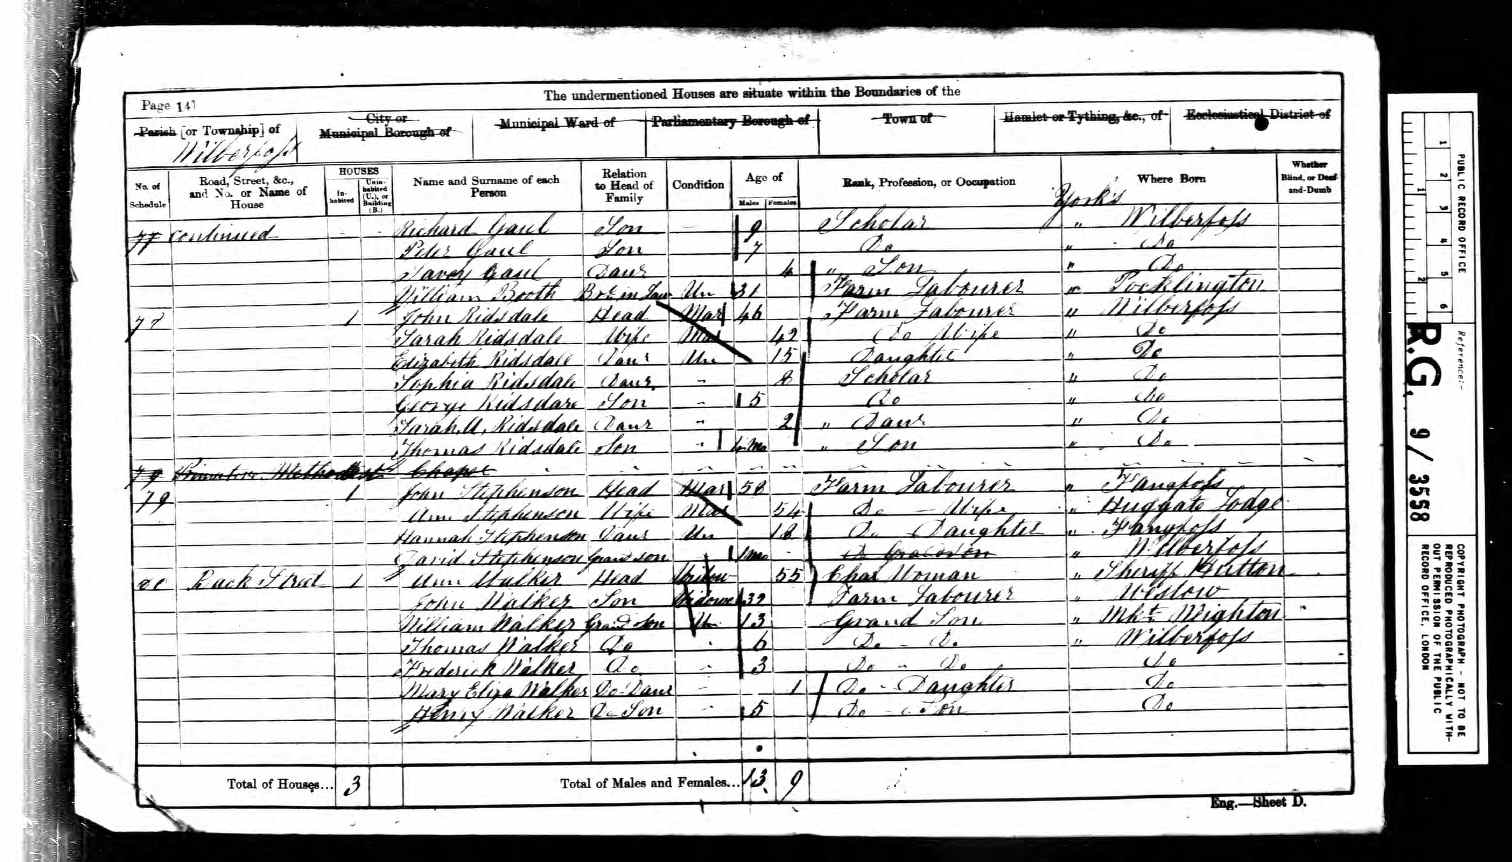 The undermentioned Houses are situate within the Boundaries of the
Page 14
Parish [or Township] of
Wilberfoss
City or Municipal Borough of
Municipal Ward of
Parliamentary Borough of
Town of
Hamlet or Tything, &c., of
Ecclesiastical District of
No. of Schedule
Road, Street, &c., and No. or Name of House
HOUSES
In-habited
Unin-habited (U.), or Building (B.)
Name and Surname of each Person
Relation to Head of Family
Condition
Age of
Males
Females
Rank, Profession, or Occupation
Where Born
Whether Blind, or Deaf-and-Dumb
York's
77 Continued Richard Gaul Son 9 Scholar " Wilberfoss
Peter Gaul Son 7 Do " Do
Gaul Daur 4 " Son " Do
William Booth Bor in Law Un 31 Farm Labourer " Pocklington
78 1 John Ridsdale Head Mar 46 Farm Labourer " Wilberfoss
Sarah Ridsdale Wife Mar 42 Do Wife " Do
Elizabeth Ridsdale Daur Un 15 Daughter " Do
Sophia Ridsdale Daur " 8 Scholar " Do
George Ridsdare Son " 5 Do " Do
Sarah A. Ridsdale Daur " 2 " Daur " Do
Thomas Ridsdale Son " Mo " Son " Do
79 Primitive Methodist Chapel
79 1 John Stephenson Head Mar 58 Farm Labourer " Fangfoss
Ann Stephenson Wife Mar 54 Do - Wife " Huggate Lodge
Hannah Stephenson Daur Un 18 Do Daughter " Fangfoss
David Stephenson Grandson 1Mo Do Grandson " Wilberfoss
80 Back Street 1 Ann Walker Head Widow 55 Char Woman " Sheriff Hutton
John Walker Son Widower 32 Farm Labourer " Westow
William Walker Grand Son Un 13 Grand Son " Mkt Wighton
Thomas Walker Do " 6 Do - Do " Wilberfoss
Frederick Walker Do " 3 Do " Do Do
Mary Eliza Walker Do-Daur - 1 Do - Daughter Do
Henry Walker Do Son " 5 Do - Son Do
Total of Houses... 3
Total of Males and Females... 13 9
Eng.—Sheet D.
PUBLIC RECORD OFFICE
1 2 3 4 5 6
1 2
Reference:-
R.G. 9/3558
COPYRIGHT PHOTOGRAPH - NOT TO BE
REPRODUCED PHOTOGRAPHICALLY WITH-
OUT PERMISSION OF THE PUBLIC
RECORD OFFICE, LONDON